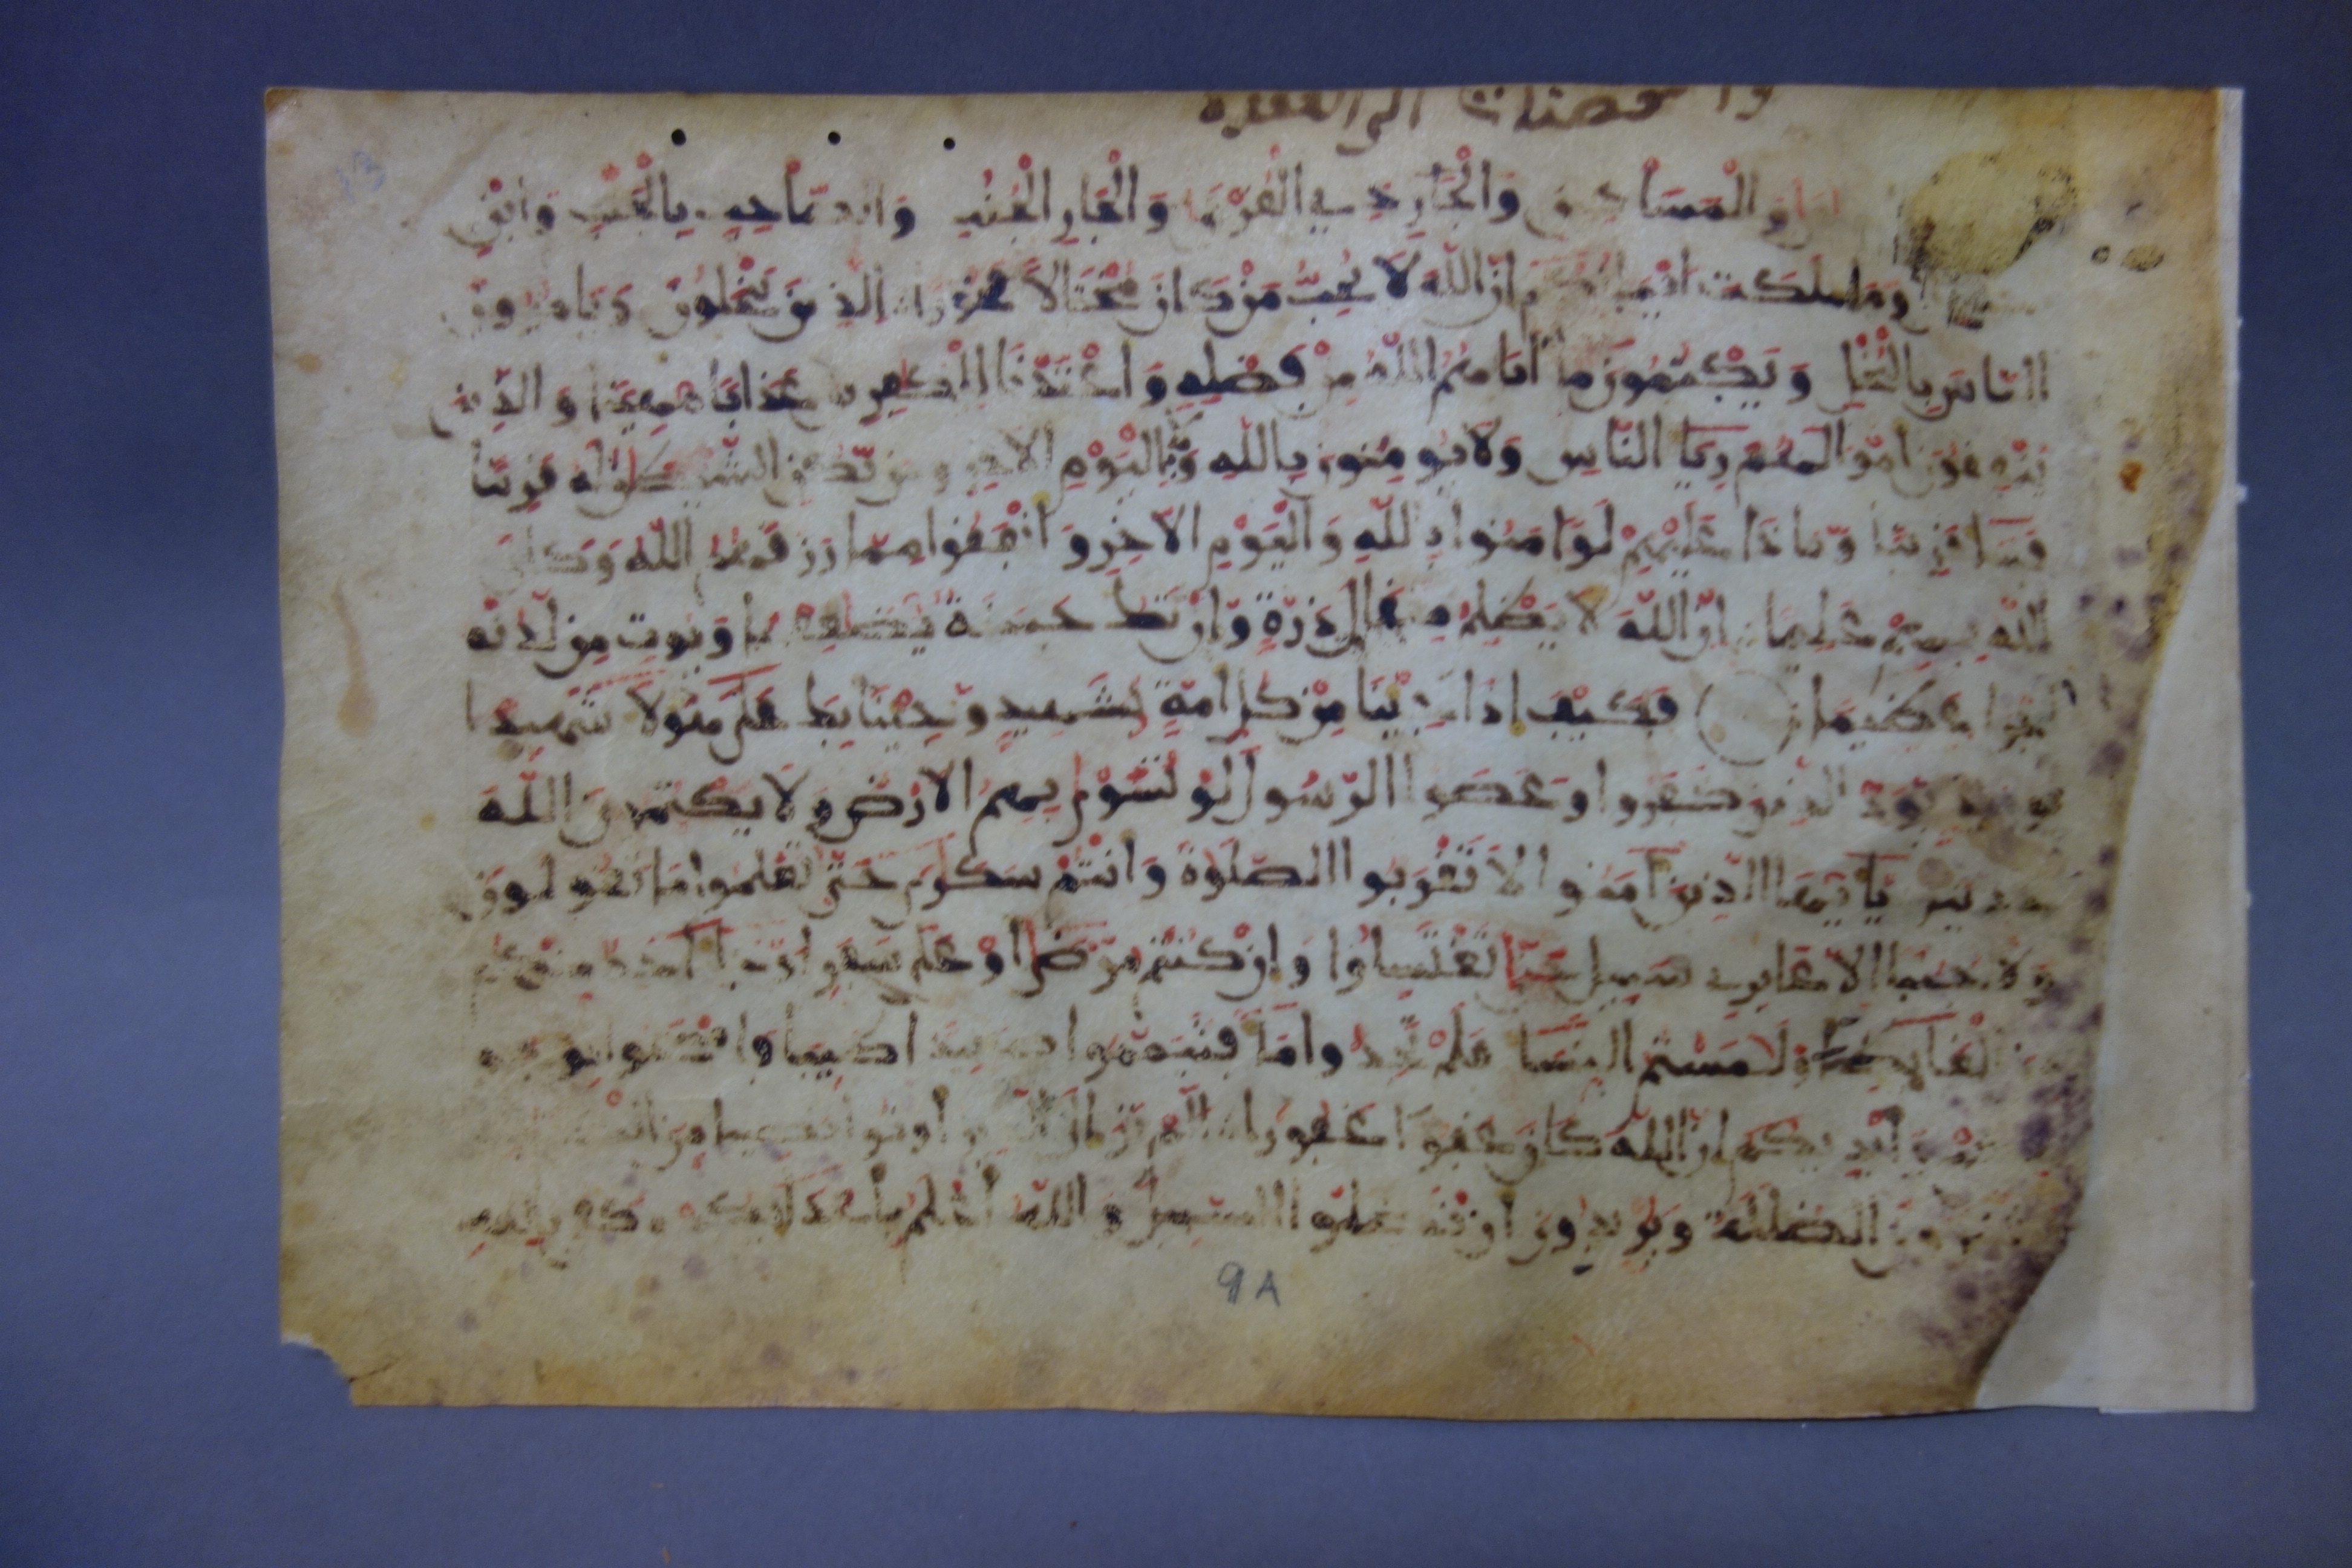 والمسكين والجار ذي القربى والجار الجنب والصاحب بالجنب وابن
وما ملكت ايمانكم ان الله لا يحب من كان مختالا فخورا الذين يبخلون ويامرون
الناس بالبخل ويكتمون ما اتاهم الله من فضله واعتدنا للكفرين عذابا مهينا والذين
ينفقون امولهم ريا الناس ولا يومنون بالله ولا باليوم الاخر ومن يكن الشيطن له قرينا
فسا قرينا وماذا عليهم لو امنوا بالله واليوم الاخر وانفقوا مما رزقهم الله وكان
الله بهم عليما ان الله لا يظلم مثقال ذرة وان تك حسنة يضعفها ويوت من لدنه
اجرا عظيما فكيف اذا جينا من كل امة بشهيد وجينا بك على هولا شهيدا
يوميذ يود الذين كفروا وعصوا الرسول لو تسوى بهم الارض ولا يكتمون الله
حديثا يايها الذين امنوا لا تقربوا الصلوة وانتم سكرى حتى تعلموا ما تقولون
ولا جنبا الا عابري سبيل حتى تغتسلوا وان كنتم مرضى او على سفر او جا احد منكم
من الغايط او لمستم النسا فلم تجدوا ما فتيمموا صعيدا طيبا فامسحوا بوجوهكم
وايديكم ان الله كان عفوا غفورا الم تر الى الذين اوتوا نصيبا من الكتب
يشترون الضللة ويريدون ان تضلوا السبيل والله اعلم باعدايكم وكفى بالله
9A